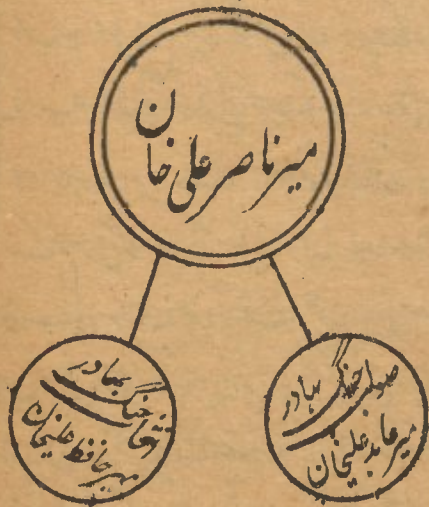 میر ناصر علی خان
صولت جنگ بہادر
میر عابد علیخان
جنگ بہادر
میر حافظ علیخان